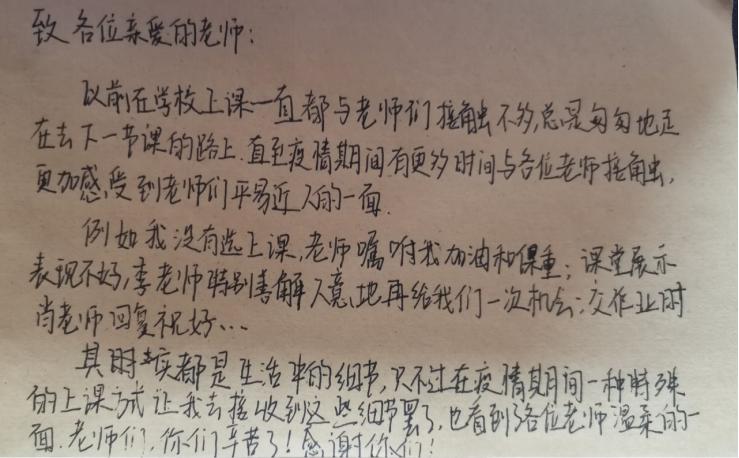 致各位亲爱的老师：
以前在学校上课一直都与老师们接触不多，总是匆匆地走
在去下一节课的路上。直至疫情期间有更多时间与各位老师接触，
更加感受到老师们平易近人的一面。
例如我没有选上课，老师嘱咐我加油和保重；课堂展示
表现不好，李老师特别善解人意地再给我们一次机会；交作业时
肖老师回复祝好…
其时实都是生活中的细节，只不过在疫情期间一种特殊
的上课方式让我去接收到这些细节罢了，也看到了各位老师温柔的一
面。老师们，你们辛苦了！感谢你们！